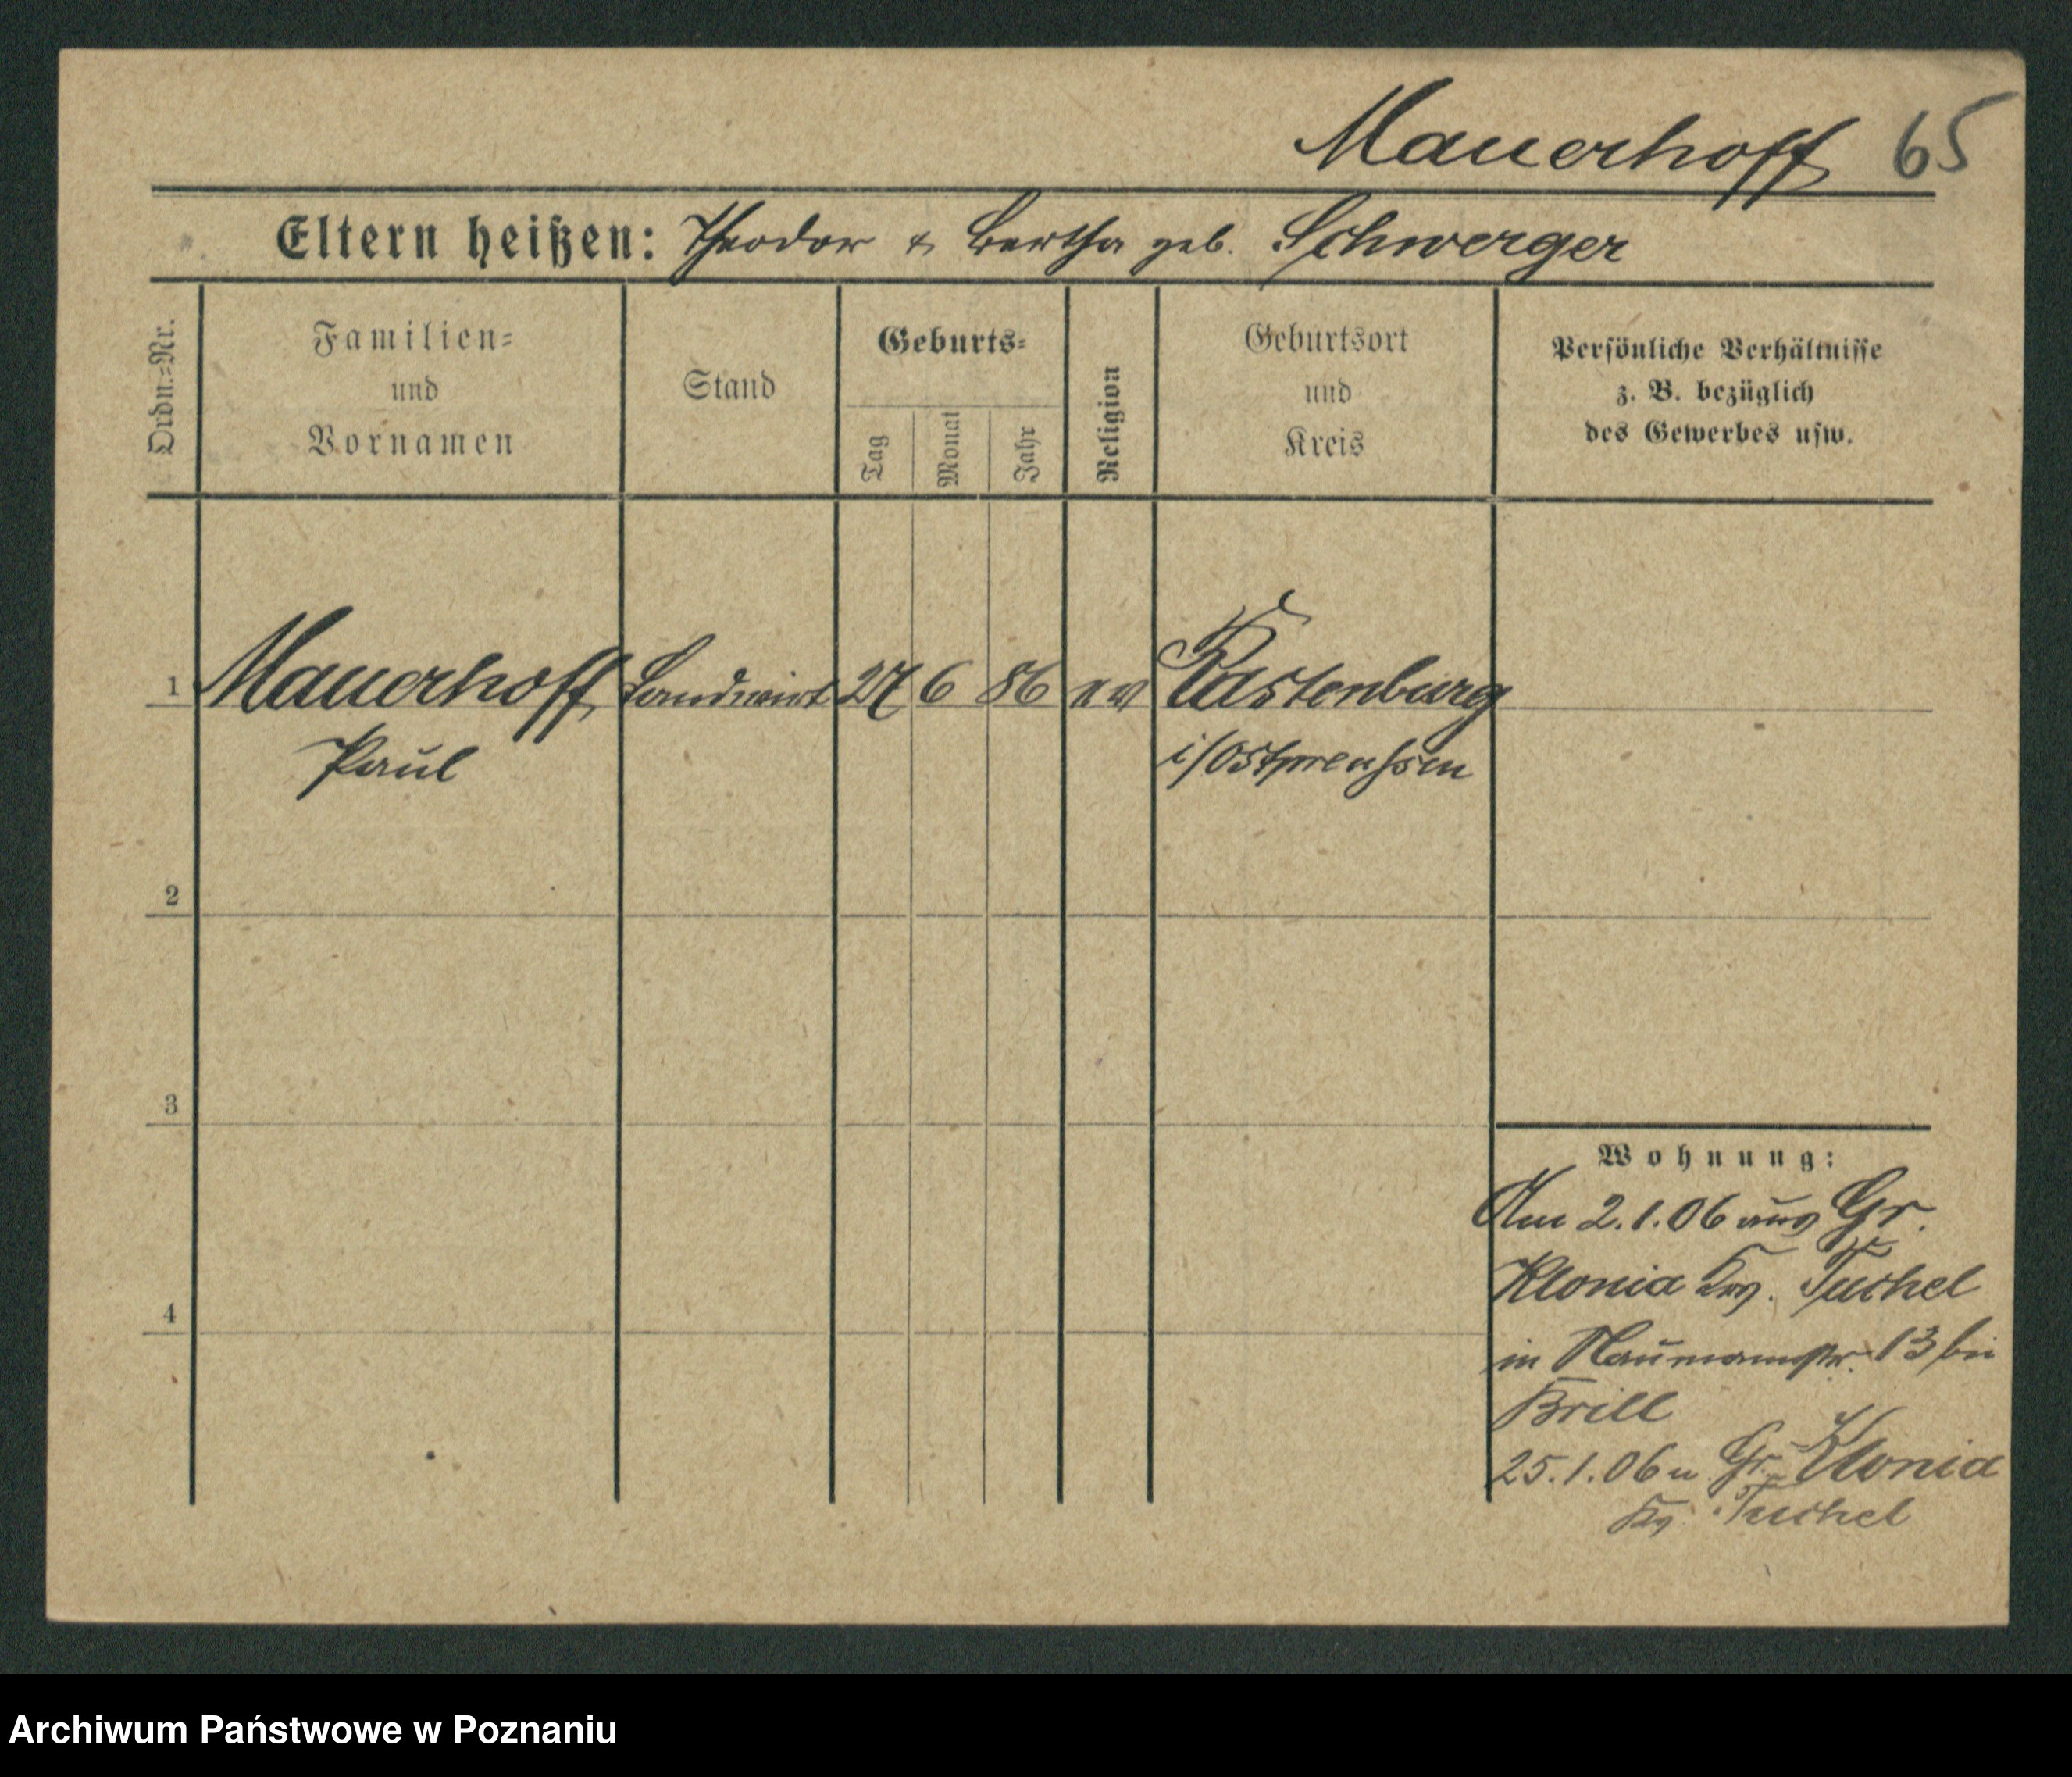 Mauerhoff 65
Eltern heißen: Theodor & Bertha geb. Schwerger
Ordn.=Nr.
Familien=
und
Vornamen
Stand
Geburts=
Tag
Monat
Jahr
Religion
Geburtsort
und
Kreis
Persönliche Verhältnisse
z. B. bezüglich
des Gewerbes usw.
1 Mauerhoff Landwirt 27 6 86 ev Rastenburg
Paul i/Ostpreussen
2
3
4
Wohnung:
Am 2.1.06 aus Gr.
Klonia Krs. Tuchel
in Naumannstr. 13 bei
Brill
25.1.06 n. Gr. Klonia
Kr. Tuchel
Archiwum Państwowe w Poznaniu